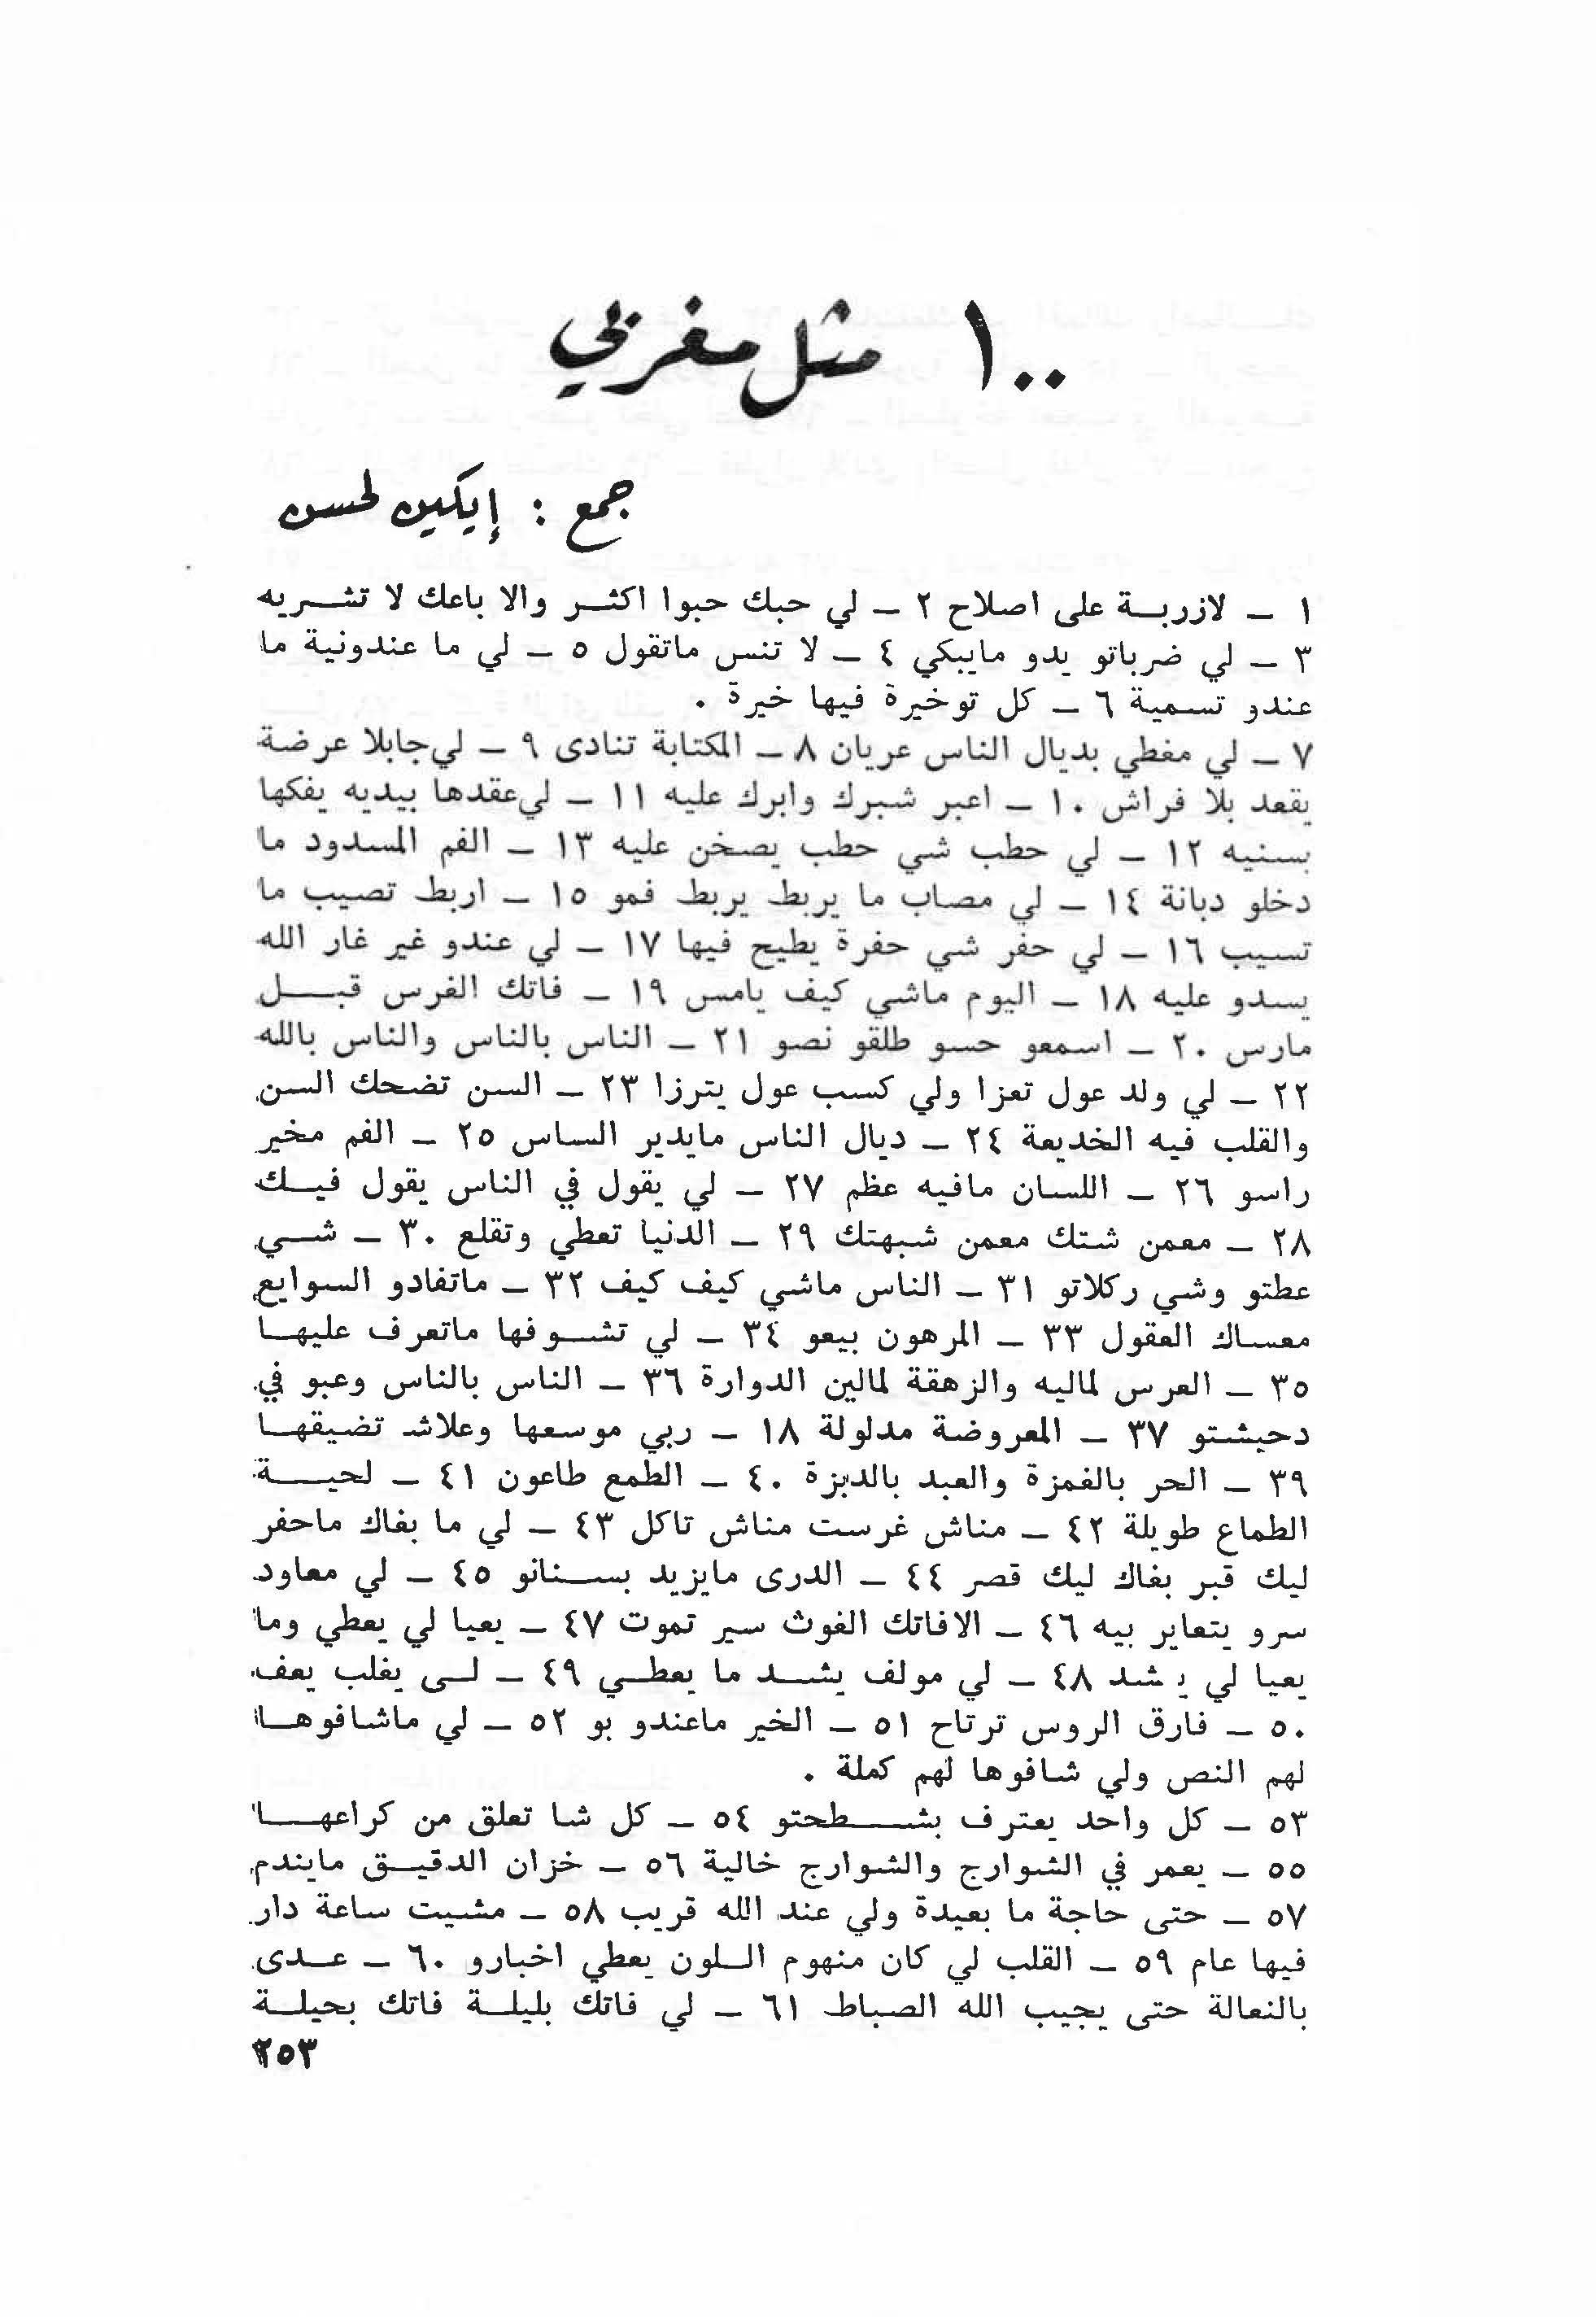 ١٠٠ مثل مغربي
جمع : إيكين لحسن
١ – لازربة على اصلاح ٢ – لي حبك حبوا اكثر والا باعك لا تشريه
٣ – لي ضرباتو يدو مايبكي ٤ – لا تنس ماتقول ٥ – لي ما عندونية ما
عندو تسمية ٦ – كل توخيرة فيها خيرة .
٧ – لي مغطي بديال الناس عريان ٨ – المكتابة تنادى ٩ – لي جابلا عرضة
يقعد بلا فراش ١٠ – اعبر شبرك وابرك عليه ١١ – لي عقدها بيديه يفكها
بسنيه ١٢ – لي حطب شي حطب يصخن عليه ١٣ – الفم المسدود ما
دخلو دبانة ١٤ – لي مصاب ما يربط يربط فمو ١٥ – اربط تصيب ما
تسيب ١٦ – لي حفر شي حفرة يطيح فيها ١٧ – لي عندو غير غار الله
يسدو عليه ١٨ – اليوم ماشي كيف يامس ١٩ – فاتك الغرس قبل
مارس ٢٠ – اسمعو حسو طلقو نصو ٢١ – الناس بالناس والناس بالله
٢٢ – لي ولد عول تعزا ولي كسب عول يترزا ٢٣ – السن تضحك السن
والقلب فيه الخديعة ٢٤ – ديال الناس مايدير الساس ٢٥ – الفم مخير
راسو ٢٦ – اللسان مافيه عظم ٢٧ – لي يقول في الناس يقول فيك
٢٨ – معمن شتك معمن شبهتك ٢٩ – الدنيا تعطي وتقلع ٣٠ – شي
عطتو وشي ركلاتو ٣١ – الناس ماشي كيف كيف ٣٢ – ماتفادو السوايع
معساك العقول ٣٣ – المرهون بيعو ٣٤ – لي تشوفها ماتعرف عليها
٣٥ – العرس لماليه والزهقة لمالين الدوارة ٣٦ – الناس بالناس وعبو في
دحيشتو ٣٧ – المعروضة مدلولة ١٨ – ربي موسعها وعلاش تضيقها
٣٩ – الحر بالغمزة والعبد بالدبزة ٤٠ – الطمع طاعون ٤١ – لحية
الطماع طويلة ٤٢ – مناش غرست مناش تاكل ٤٣ – لي ما بغاك ماحفر
ليك قبر بغاك ليك قصر ٤٤ – الدرى مايزيد بسنانو ٤٥ – لي معاود
سرو يتعاير بيه ٤٦ – الافاتك الغوث سير تموت ٤٧ – يعيا لي يعطي وما
يعيا لي يشد ٤٨ – لي مولف يشد ما يعطي ٤٩ – لى يغلب يعف
٥٠ – فارق الروس ترتاح ٥١ – الخير ماعندو بو ٥٢ – لي ماشافوها
لهم النص ولي شافوها لهم كملة .
٥٣ – كل واحد يعترف بشطحتو ٥٤ – كل شا تعلق من كراعها
٥٥ – يعمر في الشوارج والشوارج خالية ٥٦ – خزان الدقيق مايندم
٥٧ – حتى حاجة ما بعيدة ولي عند الله قريب ٥٨ – مشيت ساعة دار
فيها عام ٥٩ – القلب لي كان منهوم اللون يعطي اخبارو ٦٠ – عدى
بالنعالة حتى يجيب الله الصباط ٦١ – لي فاتك بليلة فاتك بحيلة
٢٥٣